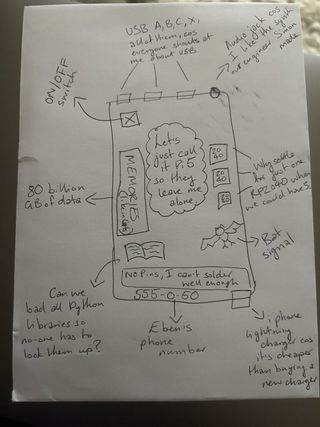 USB A,B,C,X,
all of them, cos
everyone shouts at
me about USB
Audio jack cos
I like that synth
our engineer Simon
made
ON/OFF
switch
Let's
just call
it Pi 5
so they
leave me
alone.
20
40
20
40
Why settle
for just one
RP2040 when
we could have 5
80 billion
GB of data
MEMORIES
Bat
signal
NO Pins, I can't solder
well enough
555-0-50
Can we
load all Python
libraries so
no-one has to
look them up?
Eben's
phone
number
iphone
lightning
charger cos
it's cheaper
than buying a
new charger